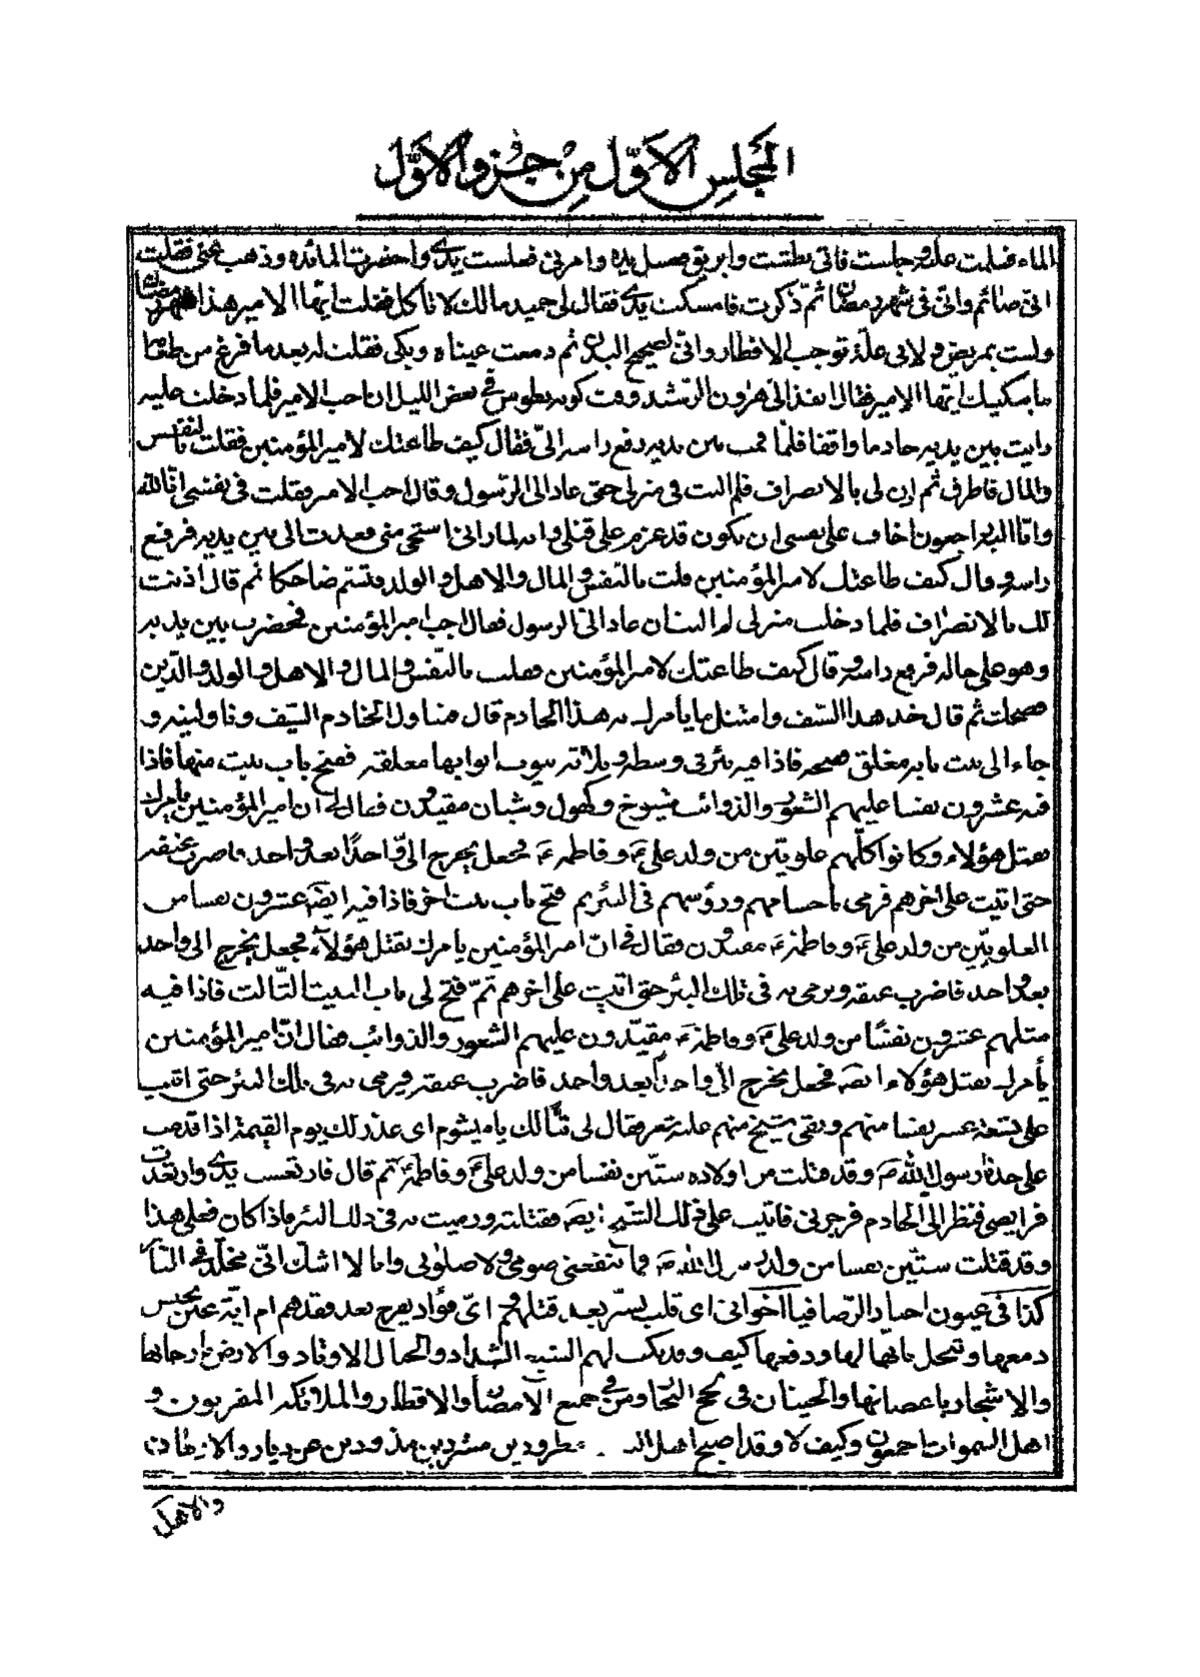 المجلس الاوّل من جزو الاوّل
الماء فسلمت عليه وجلست فاتى بطشت وابريق فغسل يده وامرنى فغسلت يدى واحضرت المائده وذهب عنى فقلت
انى صائم وانى فى شهر رمضان ثمّ ذكرت فامسكت يدى فقال لى حميد مالك لا تاكل فقلت ايّها الامير هذا شهر رمضان
ولست بمريض ولا بى علّة توجب الافطار وانّى لصحيح البدن ثم دمعت عيناه وبكى فقلت له بعد ما فرغ من طعامه
ما يبكيك ايّها الامير فقال انفذ الىّ هرون الرّشيد وقت كونه بطوس فى بعض الليل ان اجب الامير فلما دخلت عليه
رايت بين يديه خادما واقفا فلمّا قمت بين يديه رفع راسه الىّ فقال كيف طاعتك لامير المؤمنين فقلت بالنفس
والمال فاطرق ثم اذن لى بالانصراف فلم البث فى منزلى حتى عاد الى الرسول وقال اجب الامير وقلت فى نفسى انّا لله
وانّا اليه راجعون اخاف على نفسى ان يكون قد عزم على قتلى وانه لما رانى استحيى منى فعدت الى بين يديه فرفع
راسه وقال كيف طاعتك لامير المؤمنين قلت بالنفس والمال والاهل والولد فتبسّم ضاحكا ثم قال اذنت
لك بالانصراف فلما دخلت منزلى لم البث ان عاد الىّ الرسول فقال اجب امير المؤمنين فحضرت بين يديه
وهو على حاله فرفع راسه وقال كيف طاعتك لامير المؤمنين فقلت بالنّفس والمال والاهل والولد والدّين
فضحك ثم قال خذ هذا السّيف وامتثل ما يأمرك به هذا الخادم قال فتناول الخادم السّيف وناولنيه و
جاء الى بيت بابه مغلق ففتحه فاذا فيه بئر فى وسطه وثلاثة بيوت ابوابها مغلقة ففتح باب بيت منها فاذا
فيه عشرون نفسا عليهم الشعور والذوائب شيوخ وكهول وشبان مقيّدون فقال لى ان امير المؤمنين يأمرك
بقتل هؤلاء وكانوا كلّهم علويّين من ولد علىّ ع وفاطمة ع فجعل يخرج الىّ واحدًا بعد واحد فاضرب عنقه
حتى اتيت على اخرهم فرمى باجسامهم ورؤسهم فى البئر ثم فتح باب بيت اخر فاذا فيه ايضا عشرون نفسا من
العلويّين من ولد علىّ ع وفاطمة ع مقيّدون فقال لى انّ امير المؤمنين يأمرك بقتل هؤلاء فجعل يخرج الى واحد
بعد واحد فاضرب عنقه ويرمى به فى ذلك البئر حتى اتيت على اخرهم ثمّ فتح لى باب البيت الثّالث فاذا فيه
مثلهم عشرون نفسًا من ولد علىّ ع وفاطمة ع مقيّدون عليهم الشعور والذوائب فقال انّ امير المؤمنين
يأمرك بقتل هؤلاء ايضا فجعل يخرج الىّ واحدًا بعد واحد فاضرب عنقه فيرمى به فى ذلك البئر حتى اتيت
على تسعة عشر نفسا منهم وبقى شيخ منهم عليه شعر فقال لى تبّا لك يا ميشوم اى عذر لك يوم القيمة اذا قدمت
على جدّنا رسول الله ص وقد قتلت من اولاده ستّين نفسا من ولد علىّ ع وفاطمة ع ثم قال فارتعشت يدى وارتعدت
فرايصى فنظر الى الخادم فزجرنى فاتيت على ذلك الشيخ ايضا فقتلته ورميت به فى ذلك البئر فاذا كان فعلى هذا
وقد قتلت ستّين نفسا من ولد رسول الله ص فما تنفعنى صومى ولا صلوتى وانا لا اشكّ انّى مخلّد فى النّار
كذا فى عيون اخبار الرّضا فيا اخوانى اى قلب يسرّ بعد قتلهم واىّ فؤاد يفرح بعد فقدهم ام ايّة عين تحبس
دمعها وتبخل بانهمالها ودفعها كيف وقد بكت لهم السبع الشداد والجبال الاوتاد والارض بارجائها
والاشجار باغصانها والحيتان فى لجج البحار ومن فى جميع الامصار والاقطار والملائكة المقربون و
اهل السموات اجمعون وكيف لا وقد اصبح اهل مطرودين مشرّدين مذودين عن ديار والاوطان
والاهل